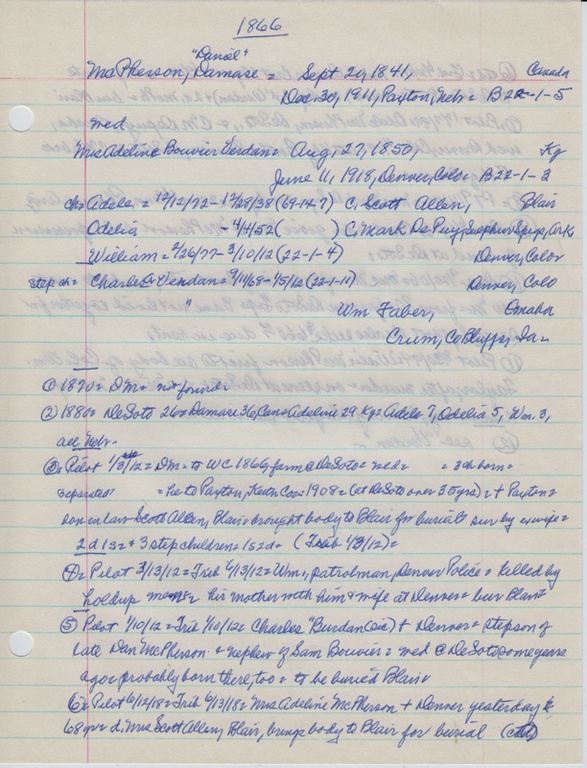 1866
"Daniel"
McPherson, Damase = Sept 20, 1841, Canada
Dec. 30, 1911, Paxton, Nebr = B22-1-5
med
Mrs Adeline Bouvier Verdan = Aug, 27, 1850, Ky
June 11, 1918, Denver, Colo = B22-1-3
ch = Adele = 10/12/72 - 12/28/38 (69-14-7) C. Scott Allen, Blair
Odelia - 4/14/52 ( ) C. Mark De Puy, Sulphur Spgs, Ark
William = 2/26/77 - 3/10/12 (22-1-4) Denver, Color
step ch = Charles Verdan = 9/11/68 - 1/5/12 (22-1-11) Denver, Colo
" Wm Faber, Omaha
Crum, Co Bluffs, Ia =
① 1870 = Dm = not found =
② 1880 = DeSoto 26 = Damase 36, Can = Adeline 29 Ky = Adele 7, Odelia 5, Wm. 3,
all Nebr =
③ = Pilot 1/3/12 = Dm = to WC 1866, farm @ DeSoto = med = = 3 ch born =
separated = he to Paxton, Keith Co = 1908 = (at DeSoto over 35 yrs) = + Paxton =
son in law Scott Allen, Blair = brought body to Blair for burial = sur by exwife =
2d 1s = + 3 step children = 1s 2d = (Trib 1/3/12) =
④ = Pilot 3/13/12 = Trib 6/13/12 = Wm, patrolman, Denver Police = killed by
holdup men = his mother with him + wife at Denver = bur Blair =
⑤ Pilot 1/10/12 = Trib 1/10/12 = Charles "Burdan (sic) + Denver = stepson of
late Dan McPherson + nephew of Sam Bouvier = med @ DeSoto some years
ago = probably born there, too = to be buried Blair =
6 = Pilot 6/12/18 = Trib 6/13/18 = Mrs Adeline McPherson + Denver yesterday =
68 yr = d. Mrs Scott Allen, Blair, brings body to Blair for burial